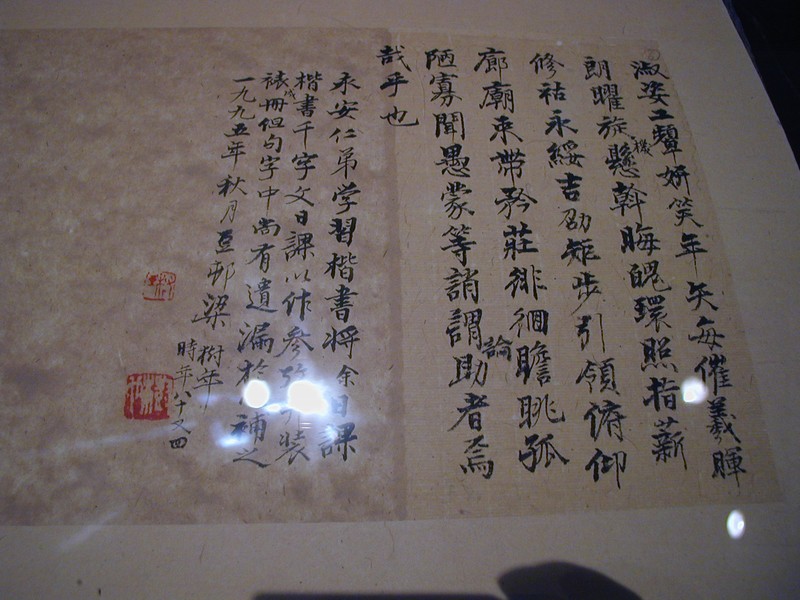 淑姿工顰妍笑年矢每催羲暉
朗曜旋機懸斡晦魄環照指薪
修祜永綏吉劭矩步引領俯仰
廊廟束帶矜莊徘徊瞻眺孤
陋寡聞愚蒙等誚謂論助者焉
哉乎也
永安仁弟学習楷書将余日課
楷書千字文日課以作参装
裱成冊但句字中尚有遺漏於補之
一九九五年秋月豆邨梁樹年
時年八十又四